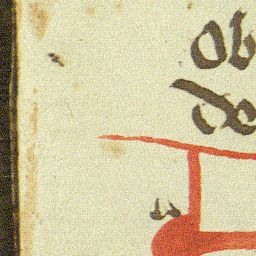 ob
de